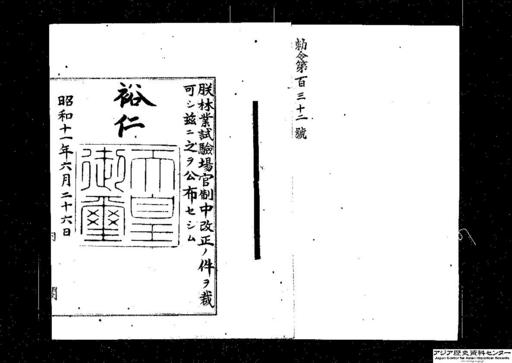 勅令第百三十二號
朕林業試驗場官制中改正ノ件ヲ裁
可シ茲ニ之ヲ公布セシム
裕仁
天皇
御璽
昭和十一年六月二十六日
内閣
アジア歴史資料センター
Japan Center for Asian Historical Records